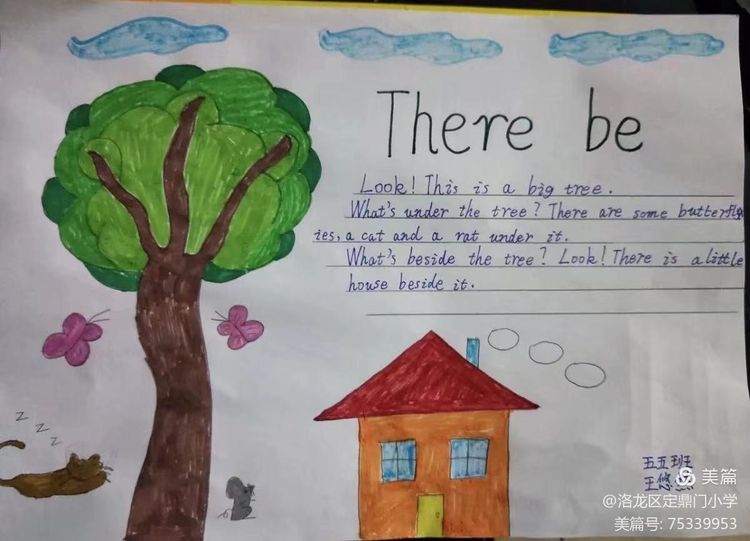 There be
Look! This is a big tree.
What's under the tree? There are some butterfl
ies, a cat and a rat under it.
What's beside the tree? Look! There is a little
house beside it.
z
z
z
五五班
王悠
美篇
@洛龙区定鼎门小学
美篇号: 75339953